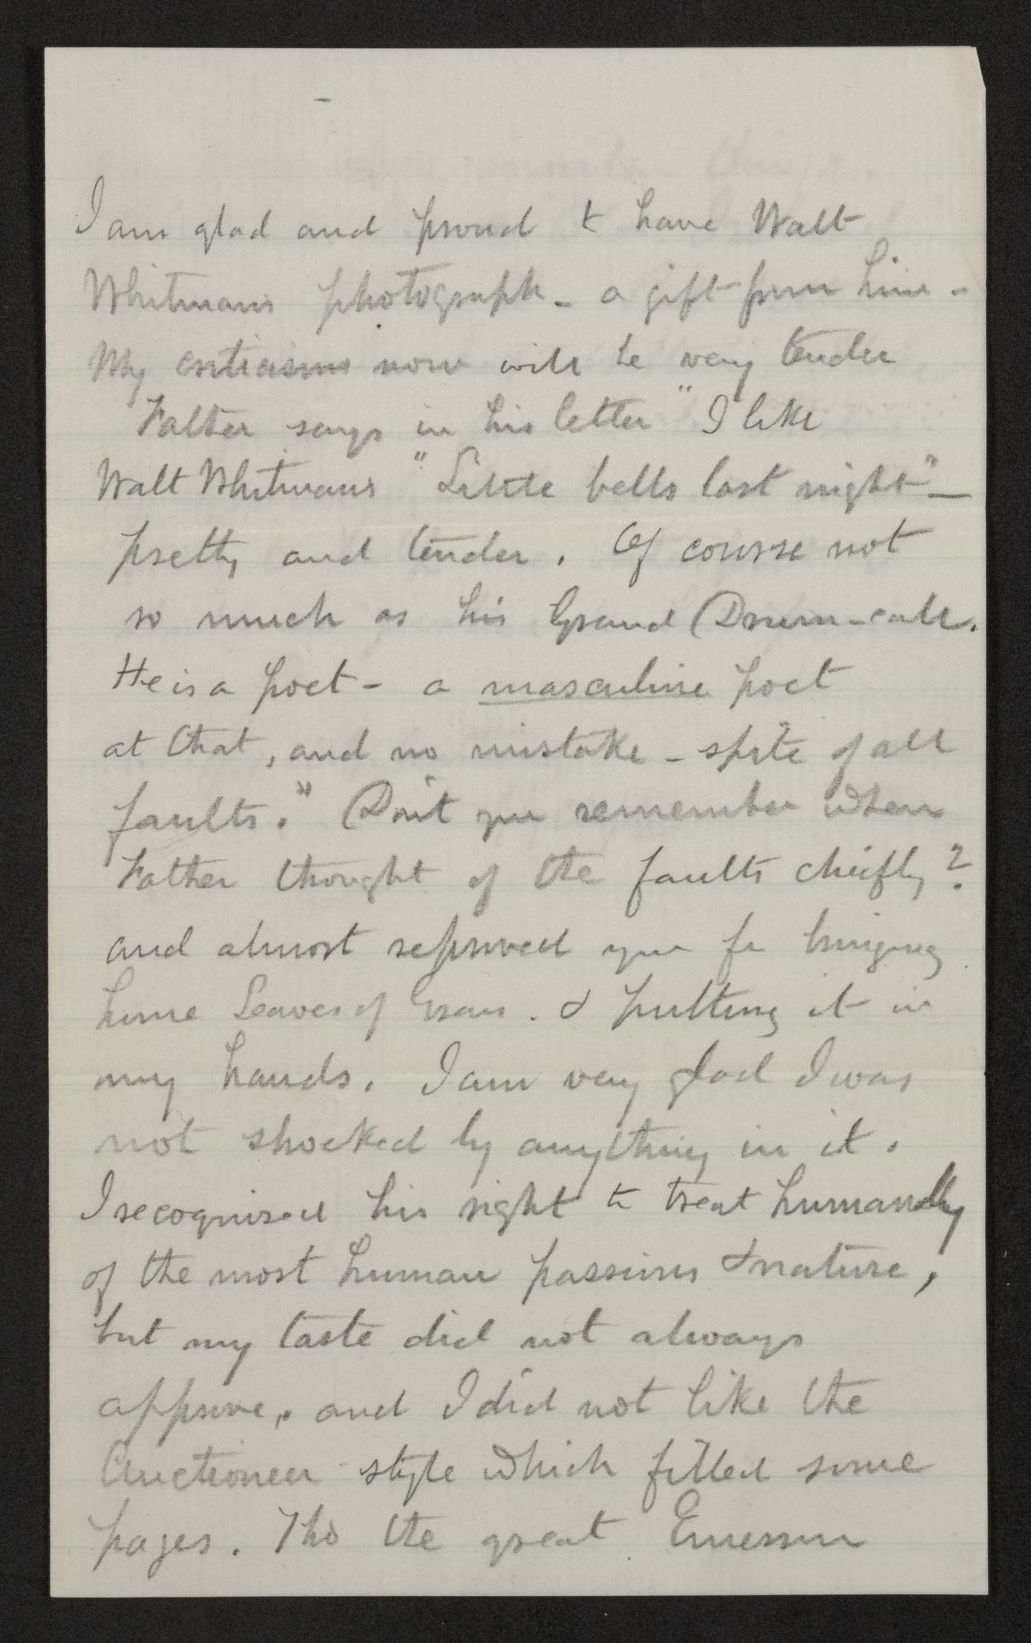 I am glad and proud to have Walt
Whitmans photograph - a gift from him -
My criticisms now will be very tender
Father says in his letter "I like
Walt Whitmans "Little bells last night" -
pretty and tender. Of course not
so much as his Grand Drum-call.
He is a poet - a masculine poet
at that, and no mistake - spite of all
faults." Don't you remember when
Father thought of the faults chiefly?
and almost reproved you for bringing
home Leaves of Grass. & putting it in
my hands. I am very glad I was
not shocked by anything in it.
I recognized his right to treat humanly
of the most human passions & nature,
but my taste did not always
approve, and I did not like the
Auctioneer style which filled some
pages. Tho the great Emerson